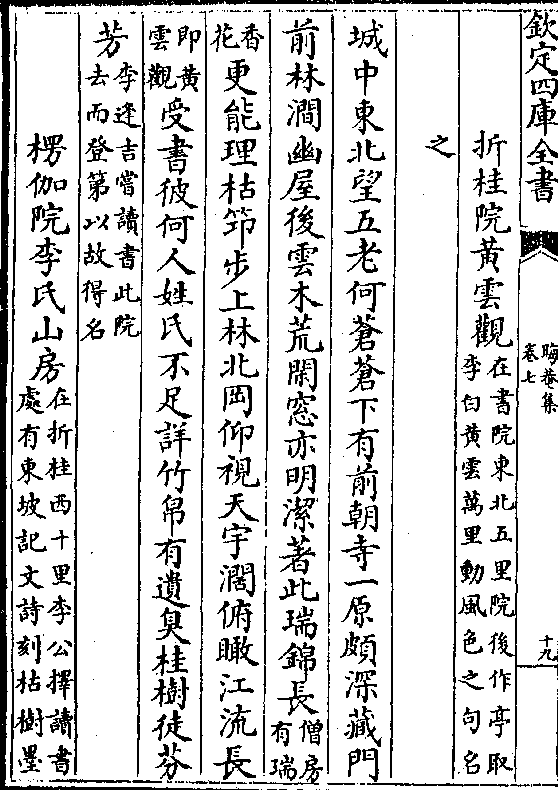 欽定四庫全書
晦菴集
卷七
十九
折桂院黄雲觀在書院東北五里院後作亭取李白黄雲萬里動風色之句名
之
城中東北望五老何蒼蒼下有前朝寺一原頗深藏門
前林澗幽屋後雲木荒閑窓亦明潔著此瑞錦長僧房有瑞
香花更能理枯筇步上林北岡仰視天宇濶俯瞰江流長
即黄雲觀受書彼何人姓氏不足詳竹帛有遺臭桂樹徒芬
芳李逢吉嘗讀書此院去而登第以故得名
楞伽院李氏山房在折桂西十里李公擇讀書處有東坡記文詩刻枯樹墨